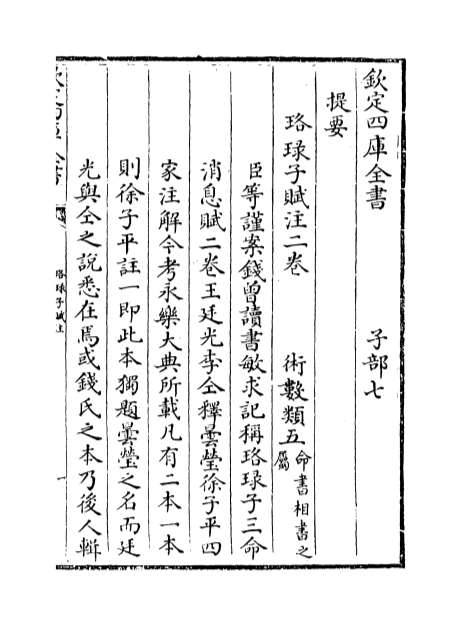 欽定四庫全書　子部七
提要
珞琭子賦注二卷　術數類五命書相書之屬
臣等謹案錢曽讀書敏求記稱珞琭子三命
消息賦二卷王廷光李仝釋曇瑩徐子平四
家注解今考永樂大典所載凡有二本一本
則徐子平註一即此本獨題曇瑩之名而廷
光與仝之說悉在焉或錢氏之本乃後人輯
欽定四庫全書
珞琭子賦注
一